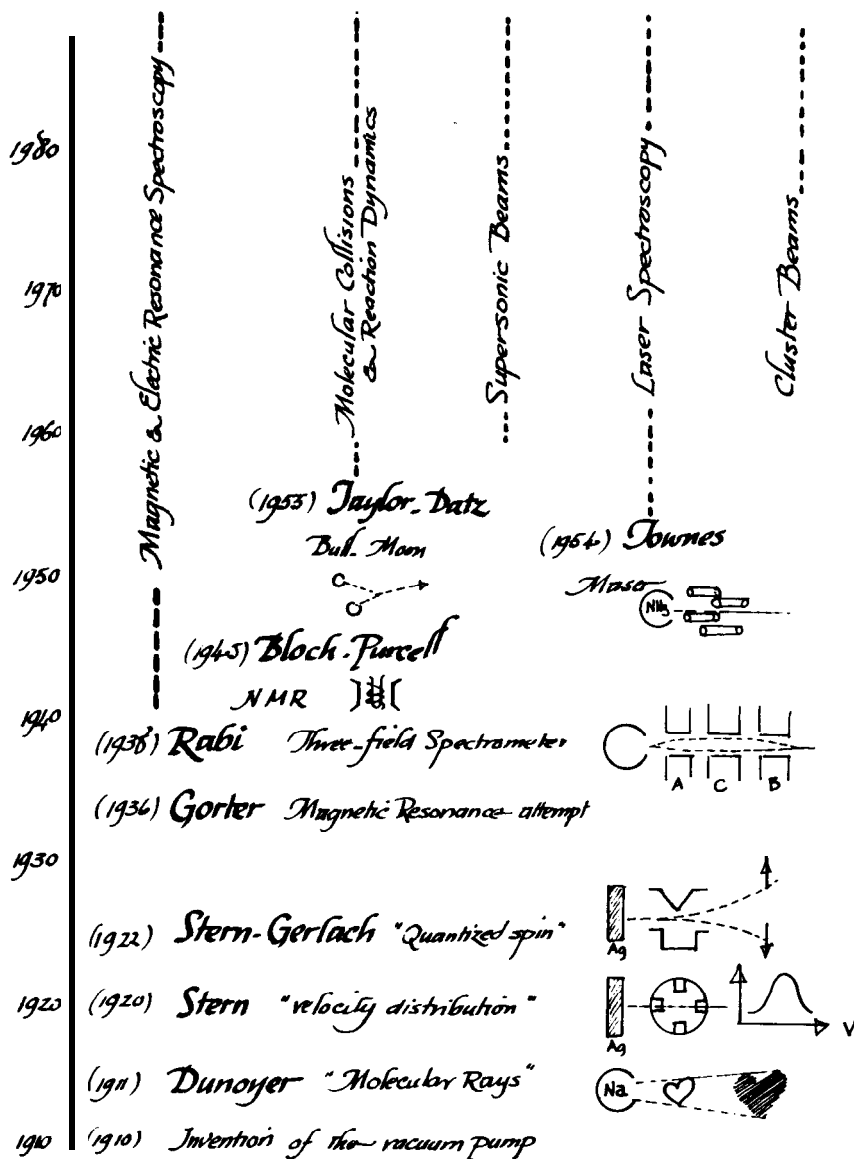 1980
1970
1960
1950
1940
1930
1920
1910
Magnetic & Electric Resonance Spectroscopy
Molecular Collisions
& Reaction Dynamics
Supersonic Beams
Laser Spectroscopy
Cluster Beams
(1955) Taylor-Datz
Bull-Moon
(1954) Townes
Maser
NH3
(1945) Bloch-Purcell
NMR
(1938) Rabi Three-field Spectrometer
A C B
(1936) Gorter Magnetic Resonance attempt
(1922) Stern-Gerlach "Quantized spin"
Ag
(1920) Stern "velocity distribution"
Ag
V
(1911) Dunoyer "Molecular Rays"
Na
(1910) Invention of the vacuum pump